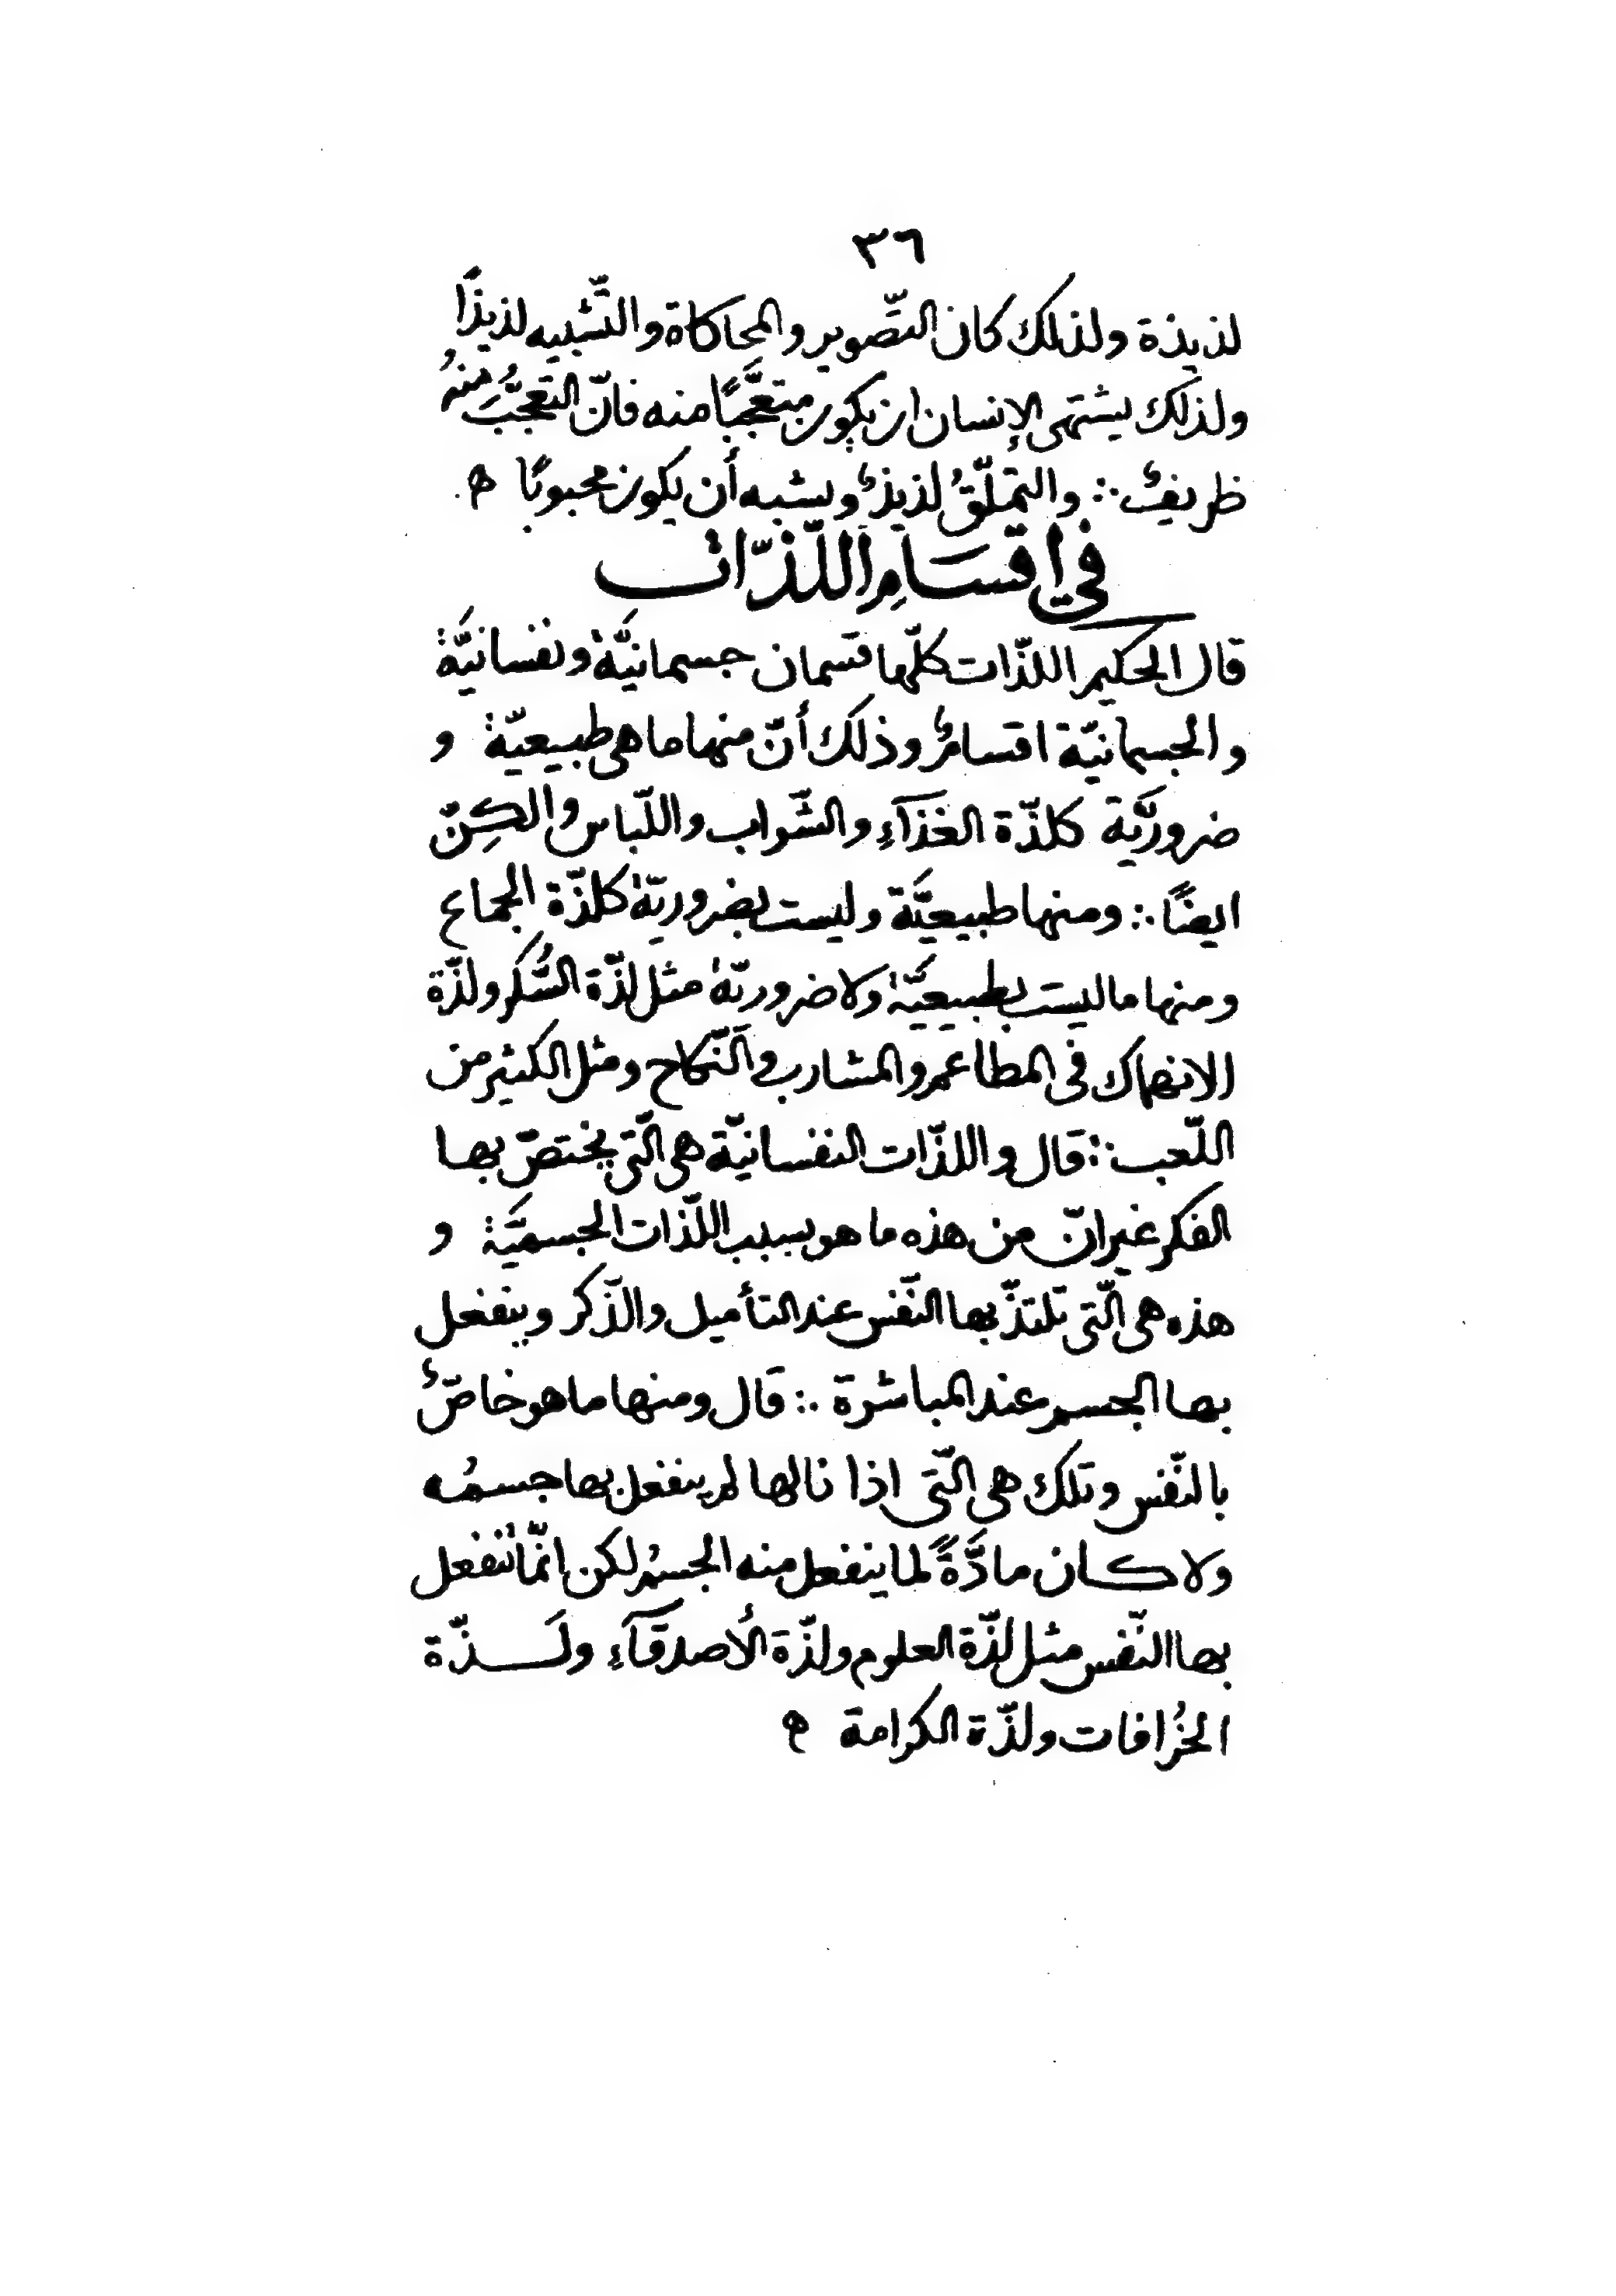 ٣٦
لذيذة ولذلك كان التّصوير والمحاكاة والتّشبيه لذيذًا
ولذلك يشتهى الإنسان ان يكون متعجَّبًا منه فانّ التعجُّبَ مِنهُ
ظريفٌ ∴ والتملّقُ لذيذٌ ويشبه أن يكون محبوبًا ه
في اقسَامِ اللّذّات
قال الحكيم اللذّات كلّها قسمان جسمانيَّةٌ ونفسانيَّةٌ
والجسمانيّة اقسامٌ وذلك أنّ منها ما هى طبيعيّةٌ و
ضروريَّة كلذّة الغذآءِ والشّراب واللّباس والكِنّ
ايضًا ∴ ومنها طبيعيَّة وليست بضروريّةٍ كلذّة الجماع
ومنها ما ليست بطبيعيَّةٍ ولا ضروريّةٍ مثل لذّة السُّكر ولذّة
الانهماك فى المطاعم والمشارب والنّكاح ومثل الكثير من
اللّعب ∴ قال واللذّات النفسانيّة هى الّتى يختصّ بها
الفكر غير انّ من هذه ما هو بسبب اللّذات الجسميَّة و
هذه هى الّتى تلتذّ بها النّفس عند التأميل والذّكر وينفعل
بها الجسم عند المباشرة ∴ قال ومنها ما هو خاصٌّ
بالنّفس وتلك هى الّتى اذا نالها لم ينفعل بها جسمُه
ولا كان مادَّةً لما ينفعل منه الجسمُ لكن انّما تنفعل
بها النّفس مثل لذّة العلوم ولذّة الأصدقآءِ ولَذّة
الخُرافات ولذّة الكرامة ه